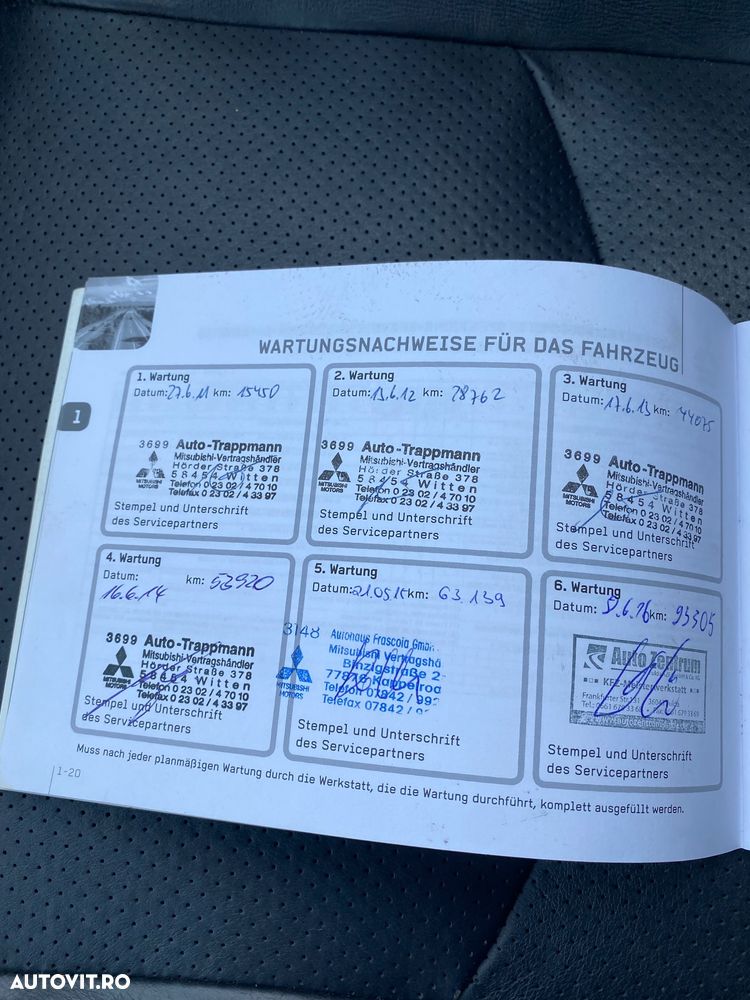 WARTUNGSNACHWEISE FÜR DAS FAHRZEUG
1
1. Wartung
Datum: 27.6.11 km: 15450
3699 Auto-Trappmann
Mitsubishi-Vertragshändler
Hörder Straße 378
58454 Witten
Telefon 0 23 02 / 4 70 10
Telefax 0 23 02 / 4 33 97
MITSUBISHI
MOTORS
Stempel und Unterschrift
des Servicepartners
2. Wartung
Datum: 13.6.12 km: 28762
3699 Auto-Trappmann
Mitsubishi-Vertragshändler
Hörder Straße 378
58454 Witten
Telefon 0 23 02 / 4 70 10
Telefax 0 23 02 / 4 33 97
MITSUBISHI
MOTORS
Stempel und Unterschrift
des Servicepartners
3. Wartung
Datum: 17.6.13 km: 44075
3699 Auto-Trappmann
Mitsubishi-Vertragshändler
Hörder Straße 378
58454 Witten
Telefon 0 23 02 / 4 70 10
Telefax 0 23 02 / 4 33 97
MITSUBISHI
MOTORS
Stempel und Unterschrift
des Servicepartners
4. Wartung
Datum: km: 53920
16.6.14
3699 Auto-Trappmann
Mitsubishi-Vertragshändler
Hörder Straße 378
58454 Witten
Telefon 0 23 02 / 4 70 10
Telefax 0 23 02 / 4 33 97
MITSUBISHI
MOTORS
Stempel und Unterschrift
des Servicepartners
5. Wartung
Datum: 21.05.15 km: 63.139
3148 Autohaus Frascoia GmbH
Mitsubishi Vertragshä
Binzigstraße 2
77876 Kappelrod
Telefon 07842 / 992
Telefax 07842 /
MITSUBISHI
MOTORS
Stempel und Unterschrift
des Servicepartners
6. Wartung
Datum: 5.6.16 km: 93305
Auto Zentrum
KFZ-Meisterwerkstatt
Frankfurter Str.
Stempel und Unterschrift
des Servicepartners
Muss nach jeder planmäßigen Wartung durch die Werkstatt, die die Wartung durchführt, komplett ausgefüllt werden.
1-20
AUTOVIT.RO